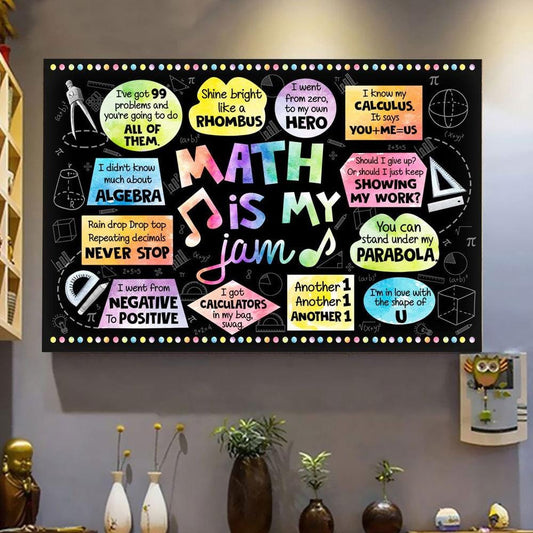 I've got 99
problems and
you're going to do
ALL OF
THEM.
Shine bright
like a
RHOMBUS
I went
from zero,
to my own
HERO
I know my
CALCULUS.
It says
YOU+ME=US
I didn't know
much about
ALGEBRA
MATH
iS MY
jam
Should I give up?
Or should I just keep
SHOWING
MY WORK?
Rain drop Drop top
Repeating decimals
NEVER STOP
You can
stand under my
PARABOLA.
I went from
NEGATIVE
TO POSITIVE
I got
CALCULATORS
in my bag,
swag.
Another 1
Another 1
ANOTHER 1
I'm in love with
the shape of
U